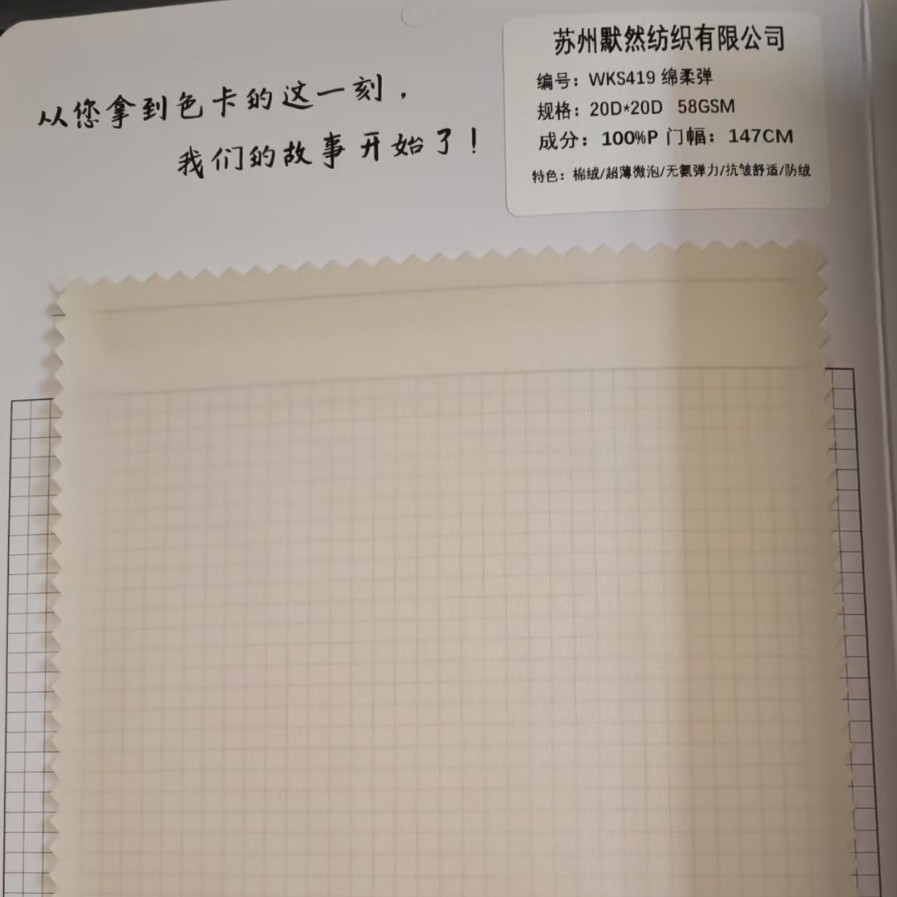 从您拿到色卡的这一刻，
我们的故事开始了！
苏州默然纺织有限公司
编号：WKS419 绵柔弹
规格：20D*20D 58GSM
成分：100%P 门幅：147CM
特色：棉绒/超薄微泡/无氨弹力/抗皱舒适/防绒